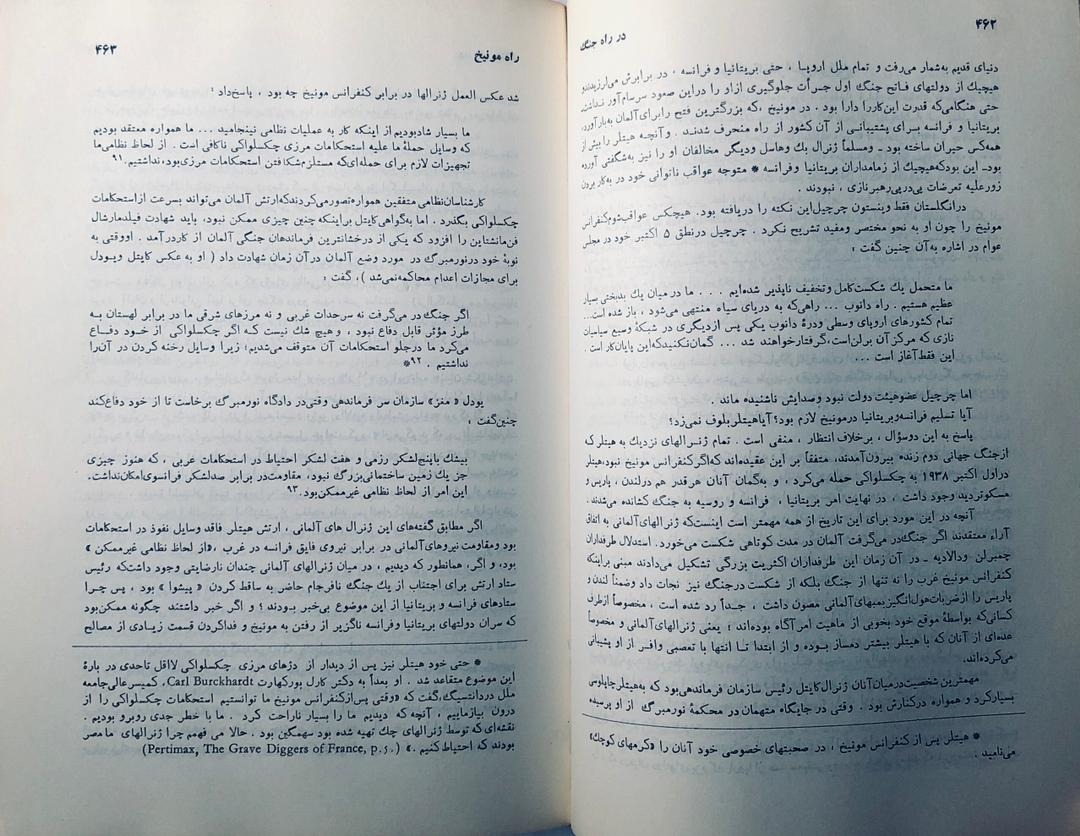 ۴۶۲
در راه جنگ
دنیای قدیم به‌شمار می‌رفت و تمام ملل اروپا ، حتی بریتانیا و فرانسه ، در برابرش می‌لرزیدند و
هیچیك از دولتهای فاتح جنگ اول جسرأت جلوگیری از او را دراین صعود سرسام‌آور نداشت.
حتی هنگامی‌که قدرت این‌کار را دارا بود . در مونیخ ،که بزرگترین فتح را برای آلمان به‌بار آورد،
بریتانیا و فرانسه بسرای پشتیبانی از آن کشور از راه منحرف شدند . و آنچه هیتلر را بیش از
همه‌کس حیران ساخته بود ـ ومسلماً ژنرال بك وهاسل ودیگر مخالفان او را نیز به‌شگفتی آورده
بود‌ـ این بودکه‌هیچیك از زمامداران بریتانیا وفرانسه * متوجه عواقب ناتوانی خود در به‌کار بردن
زورعلیه تعرضات پی‌درپی‌رهبر نازی ، نبودند .
درانگلستان فقط وینستون چرچیل‌این نکته را دریافته بود. هیچکس عواقب‌شوم‌کنفرانس
مونیخ را چون او به نحو مختصر ومفید تشریح نکرد . چرچیل درنطق ۵ اکتبر خود در مجلس
عوام در اشاره به‌آن چنین گفت :
ما متحمل یك شکست‌کامل و تخفیف ناپذیر شده‌ایم . . . ما در میان یك بدبختی بسیار
عظیم هستیم . راه دانوب ... راهی‌که به دریای سیاه منتهی می‌شود ، باز شده است...
تمام کشورهای اروپای وسطی ودرهٔ دانوب یکی پس ازدیگری در شبکهٔ وسیع سیاسیات
نازی که مرکز آن برلن‌است،گرفتارخواهند شد ... گمان‌نکنیدکه‌این پایان‌کار است .
این فقط آغاز است ...
اما چرچیل عضوهیئت دولت نبود وصدایش ناشنیده ماند .
آیا تسلیم فرانسه‌وبریتانیا درمونیخ لازم بود؟ آیاهیتلربلوف نمی‌زد؟
پاسخ به این دوسؤال ، برخلاف انتظار ، منفی است . تمام ژنرالهای نزدیك به هیتلر ک
ازجنگ جهانی دوم زنده بیرون‌آمدند، متفقاً بر این عقیده‌اند که‌اگر کنفرانس مونیخ نبود،هیتلر
دراول اکتبر ۱۹۳۸ به چکسلواکی حمله می‌کرد ، و به‌گمان آنان هرقدر هم درلندن ، پاریس و
مسکوتردید وجود داشت ، در نهایت امر بریتانیا ، فرانسه و روسیه به جنگ کشانده می‌شدند .
آنچه در این مورد برای این تاریخ از همه مهمتر است اینست‌که ژنرالهای‌آلمانی به اتفاق
آراء معتقدند اگر جنگ‌درمی‌گرفت آلمان در مدت کوتاهی شکست می‌خورد. استدلال طرفداران
چمبرلن ودالادیه ـ در آن زمان این طرفداران اکثریت بزرگی تشکیل می‌دادند مبنی براینکه
کنفرانس مونیخ غرب را نه تنها از جنگ بلکه از شکست درجنگ نیز نجات داد وضمناً لندن و
پاریس را ازضربات‌هول‌انگیزبمبهای‌آلمانی مصون داشت ، جداً رد شده است ، مخصوصاً ازطرف
کسانی‌که بواسطهٔ موقع خود بخوبی از ماهیت امر آگاه بوده‌اند ؛ یعنی ژنرالهای‌آلمانی و مخصوصاً
عده‌ای از آنان که با هیتلر بیشتر دمساز بوده و از ابتدا تا انتها با تعصبی وافر از او پشتیبانی
می‌کرده‌اند.
مهمترین شخصیت درمیان‌آنان ژنرال‌کایتل رئیس سازمان فرماندهی‌بود که به‌هیتلرچاپلوسی
بسیارکرد و همواره درکنارش بود . وقتی در جایگاه متهمان در محکمهٔ نورمبرگ از او پرسیده
* هیتلر پس از کنفرانس مونیخ ، در صحبتهای خصوصی خود آنان را «کرمهای کوچك»
می‌نامید .
راه مونیخ
۴۶۳
شد عکس العمل ژنرالها در برابر کنفرانس مونیخ چه بود ، پاسخ‌داد :
ما بسیار شادبودیم از اینکه کار به عملیات نظامی نینجامید ... ما همواره معتقد بودیم
که وسایل حملهٔ ما علیه استحکامات مرزی چکسلواکی ناکافی است . از لحاظ نظامی‌ما
تجهیزات لازم برای حمله‌ای‌که مستلزم‌شکافتن استحکامات مرزی‌بود،نداشتیم.۹۱
کارشناسان‌نظامی متفقین همواره‌تصورمی‌کردندکه‌ارتش آلمان می‌تواند بسرعت ازاستحکامات
چکسلواکی بگذرد . اما به‌گواهی‌کایتل براینکه چنین چیزی ممکن نبود، باید شهادت فیلدمارشال
فن‌مانشتاین را افزود که یکی از درخشانترین فرماندهان جنگی آلمان از کاردرآمد . اووقتی به
نوبهٔ خود درنورمبرگ در مورد وضع آلمان در آن زمان شهادت داد ( او به عکس کایتل ویودل
برای مجازات اعدام محاکمه‌نمی‌شد ) ، گفت :
اگر جنگ در می‌گرفت نه سرحدات غربی و نه مرزهای شرقی ما در برابر لهستان به
طرز مؤثر قابل دفاع نبود ، و هیچ شك نیست که اگر چکسلواکی از خود دفاع
می‌کرد ما درجلو استحکامات آن متوقف می‌شدیم؛ زیرا وسایل رخنه کردن در آن‌را
نداشتیم . ۹۲*
یودل «مغز» سازمان سر فرماندهی وقتی‌در دادگاه نورمبرگ برخاست تا از خود دفاع‌کند
چنین‌گفت :
بیشك باپنج‌لشکر رزمی و هفت لشکر احتیاط در استحکامات غربی ، که هنوز چیزی
جز یك زمین ساختمانی‌بزرگ نبود، مقاومت‌در برابر صدلشکر فرانسوی‌امکان‌نداشت.
این امر از لحاظ نظامی غیرممکن‌بود.۹۳
اگر مطابق گفته‌های این ژنرال های آلمانی ، ارتش هیتلر فاقد وسایل نفوذ در استحکامات
بود ومقاومت نیروهای‌آلمانی در برابر نیروی فایق فرانسه در غرب ، «از لحاظ نظامی غیرممکن »
بود، و اگر، همانطور که دیدیم ، در میان ژنرالهای آلمانی چندان نارضایتی وجود داشت‌که رئیس
ستاد ارتش برای اجتناب از یك جنگ نافرجام حاضر به ساقط کردن « پیشوا » بود ، پس چرا
ستادهای فرانسه و بریتانیا از این موضوع بی‌خبر بودند ؛ و اگر خبر داشتند چگونه ممکن‌بود
که سران دولتهای بریتانیا وفرانسه ناگزیر از رفتن به مونیخ و فداکردن قسمت زیادی از مصالح
* حتی خود هیتلر نیز پس از دیدار از دژهای مرزی چکسلواکی لااقل تاحدی در بارهٔ
این موضوع متقاعد شد . او بعداً به دکتر کارل بورکهارت Carl Burckhardt، کمیسرعالی‌جامعه
ملل دردانتسیگ،گفت که «وقتی پس‌ازکنفرانس مونیخ ما توانستیم استحکامات چکسلواکی را از
درون بیازماییم ، آنچه‌که دیدیم ما را بسیار ناراحت کرد . ما با خطر جدی روبرو بودیم .
نقشه‌ای‌که توسط ژنرالهای چك تهیه شده بود سهمگین بود . حالا می فهمم چرا ژنرالهای ما مصر
بودند که احتیاط کنیم .» (Pertimax, The Grave Diggers of France, p.۶.)